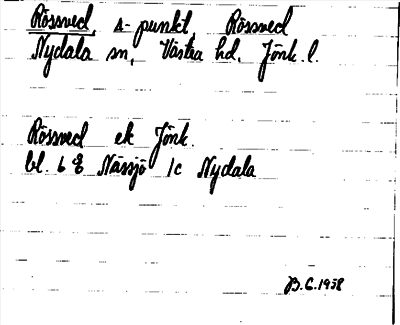 Rössved, △-punkt, Rössved
Nydala sn, Västra hd, Jönk. l.
Rössved ek Jönk.
bl. 6 8 Nässjö 1c Nydala
B.C. 1938